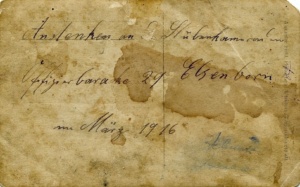 Andenken an d Stubenkameraden
Offizier baracke 29 Elsenborn
im März 1916